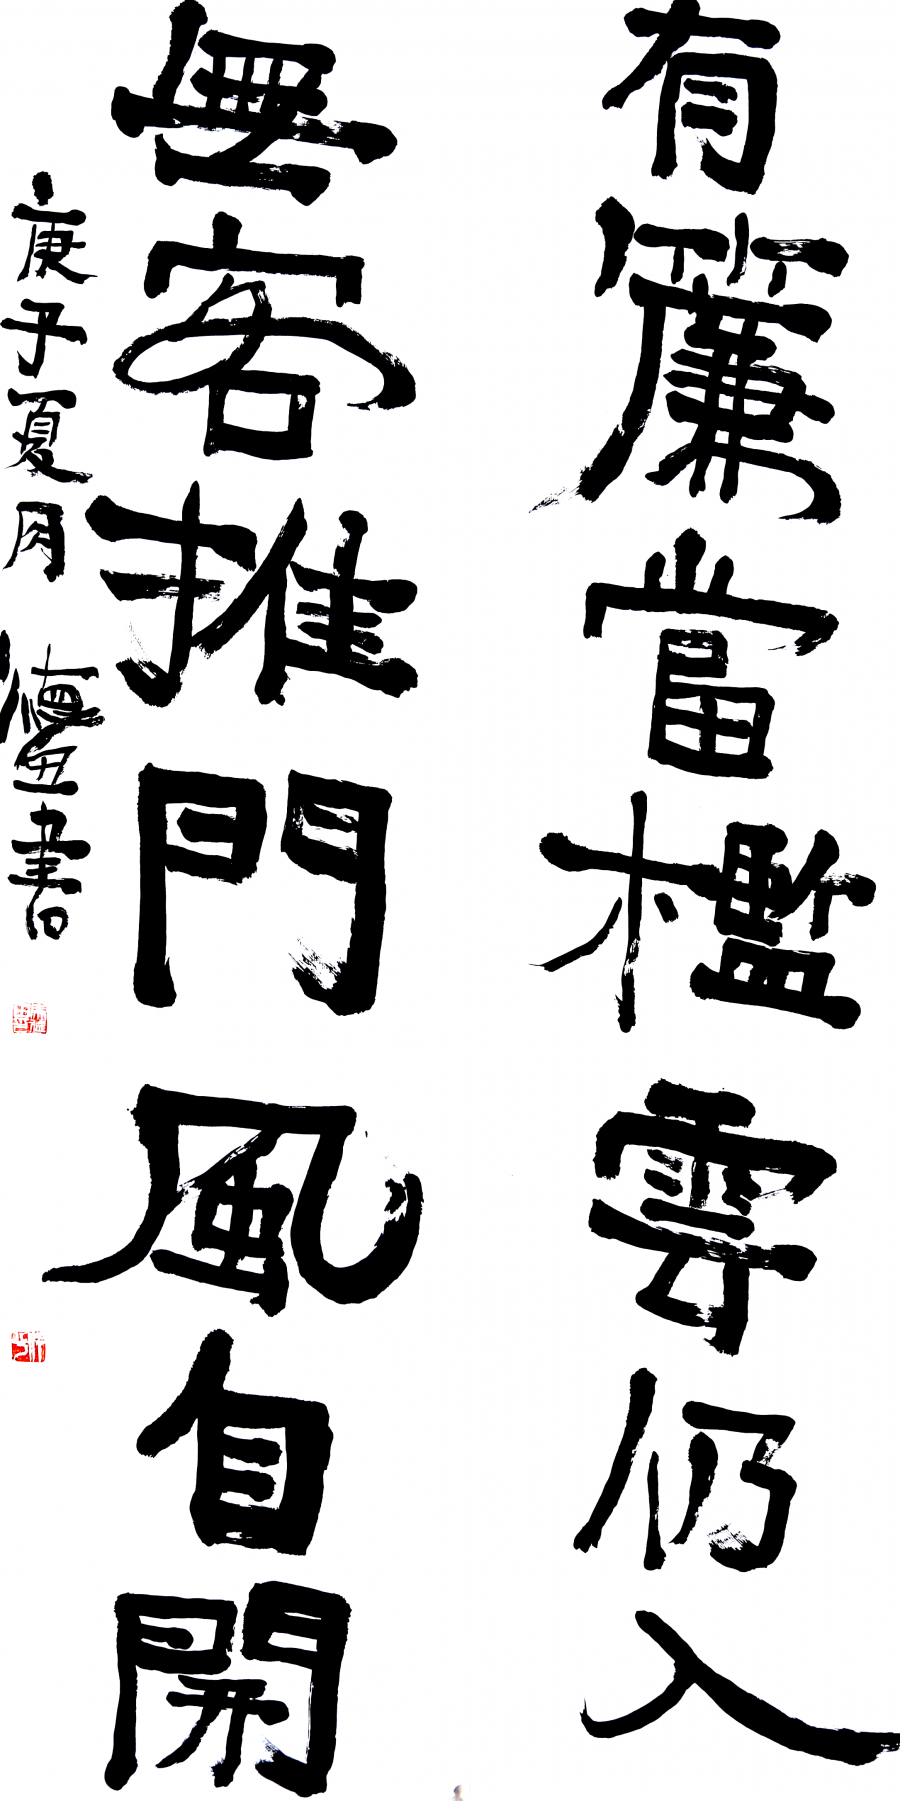 有簾當檻雲仍入
無客推門風自開
庚子夏月 德丑書